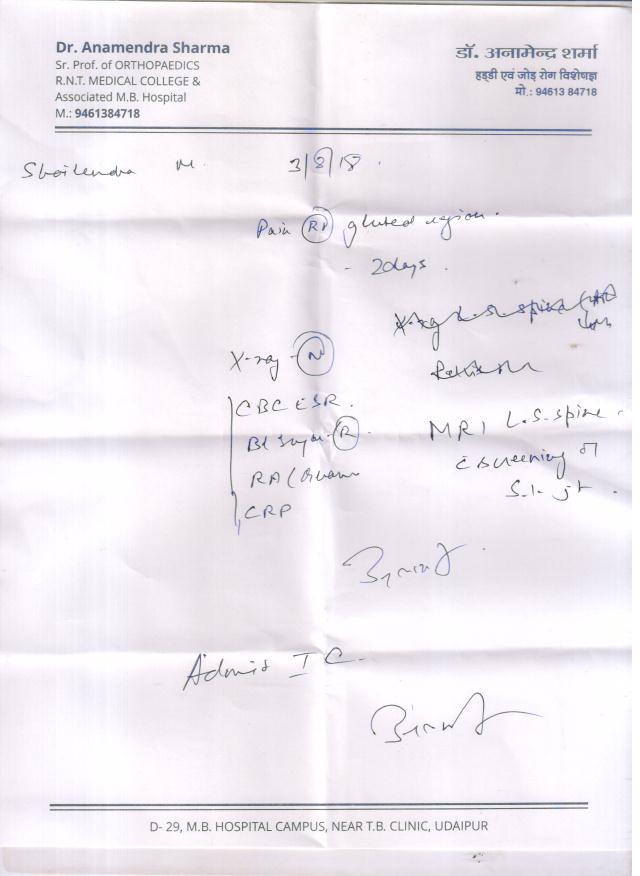 Dr. Anamendra Sharma
Sr. Prof. of ORTHOPAEDICS
R.N.T. MEDICAL COLLEGE &
Associated M.B. Hospital
M.: 9461384718
डॉ. अनामेन्द्र शर्मा
हड्डी एवं जोड़ रोग विशेषज्ञ
मो.: 94613 84718
Shailendra M. 3/8/18.
Pain Rt gluteal region.
- 2days.
X-ray L.S. spine
X-ray - N
CBC ESR.
Bl Sugar - R.
RA (
CRP
MRI L.S. spine.
c screening of
S.I. jt.
Admit I C.
D- 29, M.B. HOSPITAL CAMPUS, NEAR T.B. CLINIC, UDAIPUR